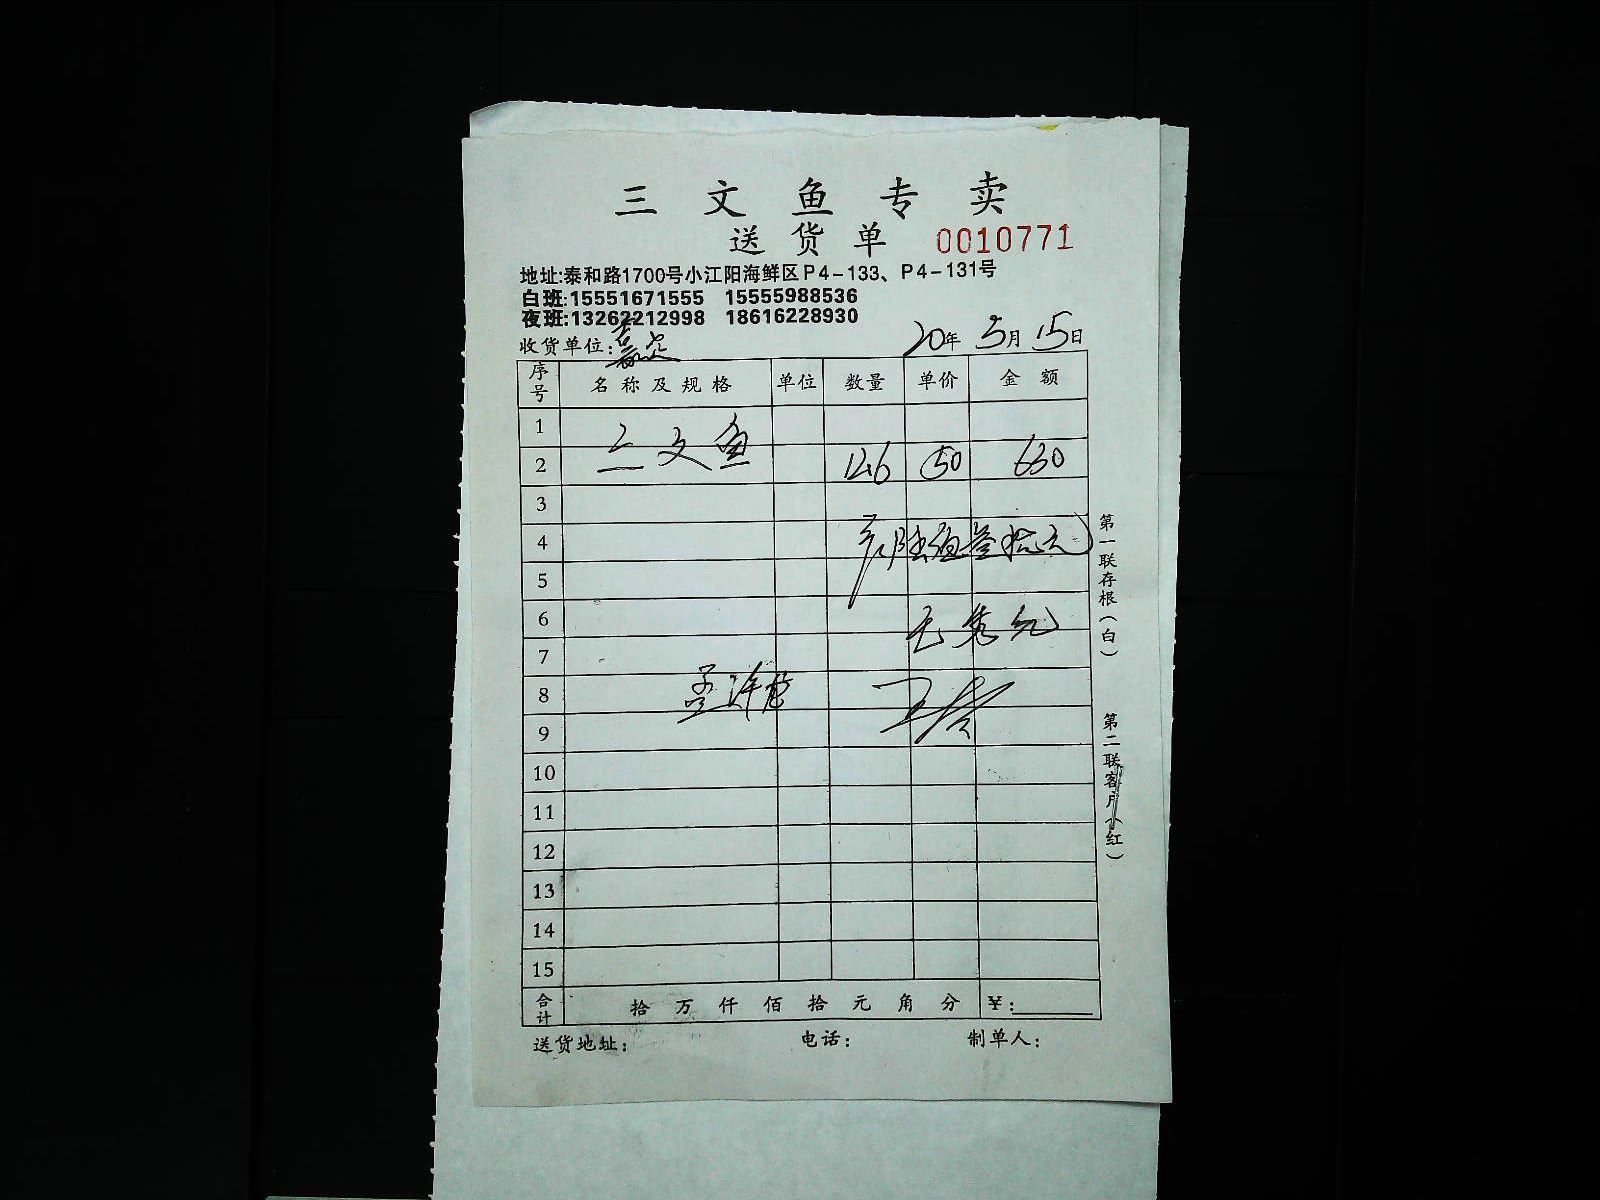 三文鱼专卖
送货单 0010771
地址:泰和路1700号小江阳海鲜区P4-133、P4-131号
白班:15551671555 15555988536
夜班:13262212998 18616228930
收货单位: 20年5月15日
序号 名称及规格 单位 数量 单价 金额
1
2 三文鱼 12.6 50 630
3
4 陆佰叁拾元
5
6
7
8
9
10
11
12
13
14
15
合计 拾万仟佰拾元角分 ¥:
送货地址: 电话: 制单人:
第一联存根(白)
第二联客户(红)